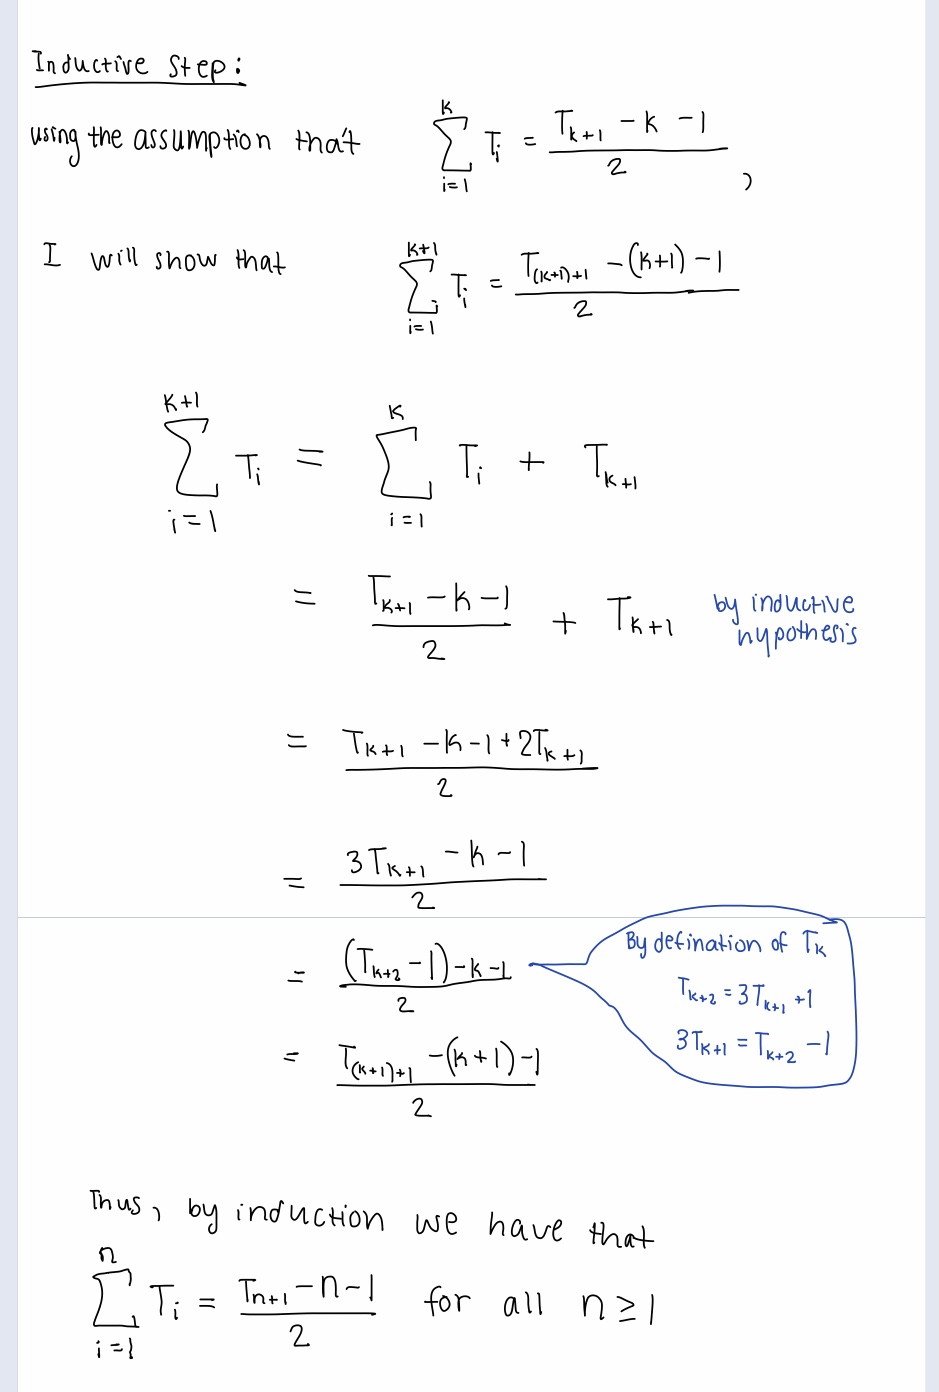 Inductive Step:
using the assumption that $\sum_{i=1}^{k} T_i = \frac{T_{k+1} - k - 1}{2}$,
I will show that $\sum_{i=1}^{k+1} T_i = \frac{T_{(k+1)+1} - (k+1) - 1}{2}$
$\sum_{i=1}^{k+1} T_i = \sum_{i=1}^{k} T_i + T_{k+1}$
$= \frac{T_{k+1} - k - 1}{2} + T_{k+1}$ by inductive
hypothesis
$= \frac{T_{k+1} - k - 1 + 2T_{k+1}}{2}$
$= \frac{3T_{k+1} - k - 1}{2}$
$= \frac{(T_{k+2} - 1) - k - 1}{2}$
By defination of $T_k$
$T_{k+2} = 3T_{k+1} + 1$
$3T_{k+1} = T_{k+2} - 1$
$= \frac{T_{(k+1)+1} - (k+1) - 1}{2}$
Thus, by induction we have that
$\sum_{i=1}^{n} T_i = \frac{T_{n+1} - n - 1}{2}$ for all $n \geq 1$